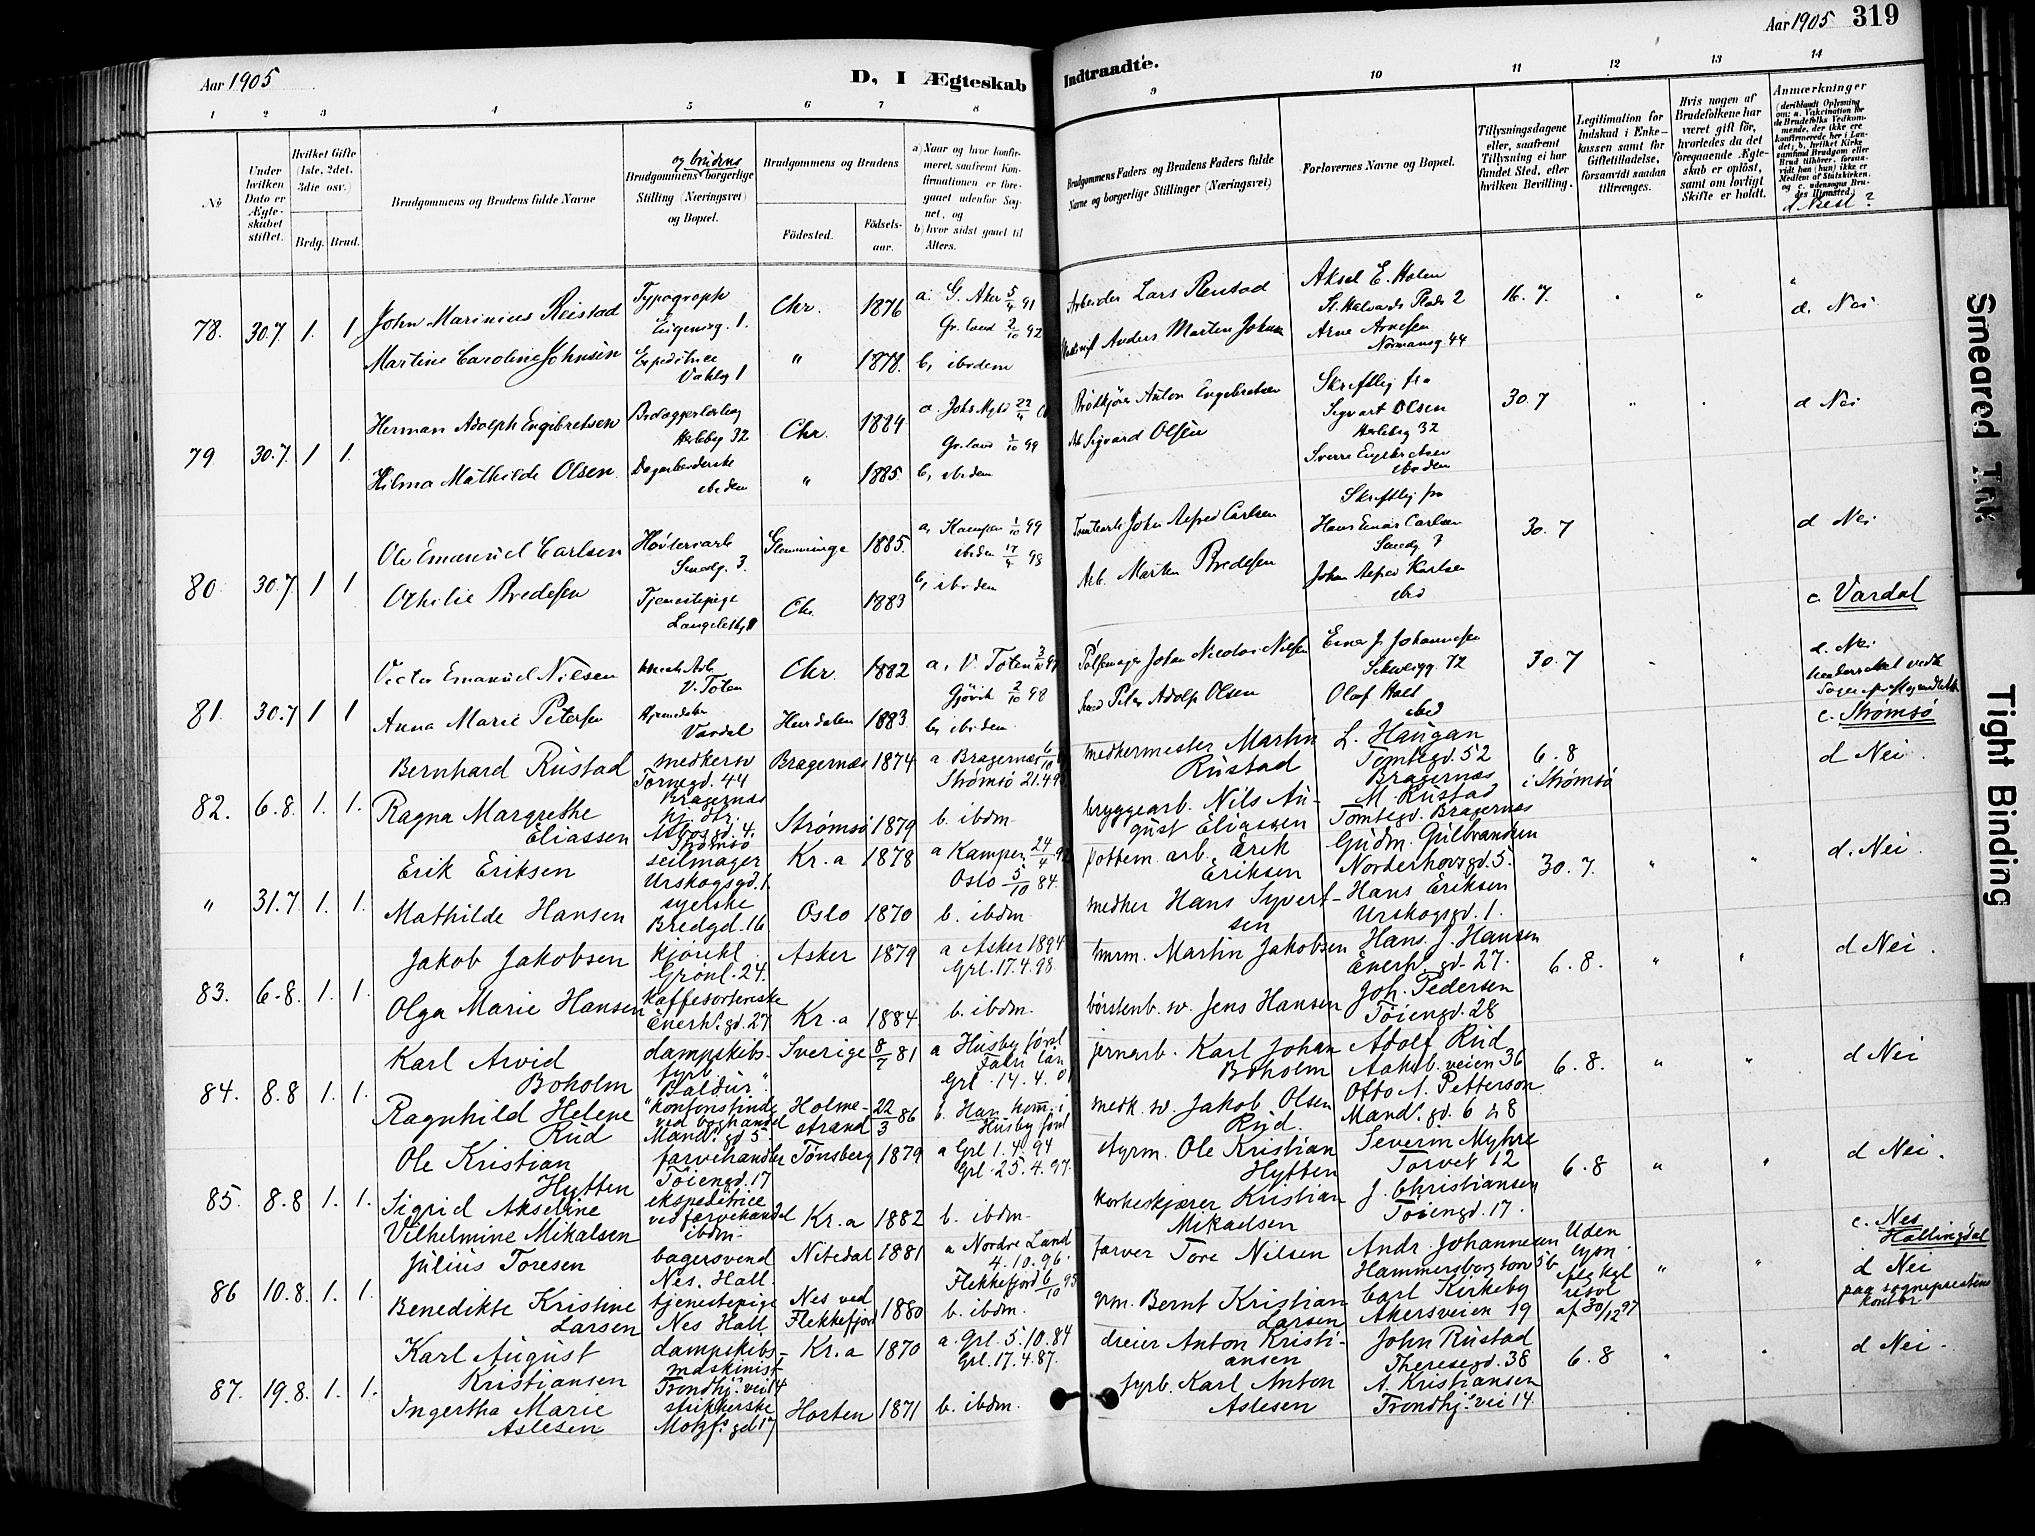 Aar 1905
D, I Ægteskab
Indtraadte.
Aar 1905 319
1 2 3 4 5 6 7 8 9 10 11 12 13 14
No
Under hvilken Dato er Ægteskabet stiftet.
Hvilket Gifte (1ste, 2det, 3die osv.)
Brdg. Brud.
Brudgommens og Brudens fulde Navne
og brudens
Brudgommens borgerlige Stilling (Næringsvei) og Bopæl.
Brudgommens og Brudens
Fødested. Fødselsaar.
a) Naar og hvor konfirmeret, saafremt Konfirmationen er foregaaet udenfor Sognet, og
b) hvor sidst gaaet til Alters.
Brudgommens Faders og Brudens Faders fulde Navne og borgerlige Stillinger (Næringsvei)
Forlovernes Navne og Bopæl.
Tillysningsdagene eller, saafremt Tillysning ei har fundet Sted, efter hvilken Bevilling.
Legitimation for Indskud i Enkekassen samt for Giftetilladelse, forsaavidt saadan tiltrænges.
Hvis nogen af Brudefolkene har været gift før, hvorledes da det foregaaende Ægteskab er opløst, samt om lovligt Skifte er holdt.
Anmærkninger
d Næsl. ?
78. 30.7 1. 1. John Marinius Reistad Typograph Eugenisg. 1. Chr. 1876 a. G. Aker 5/4 91 Arbeider Lars Reistad Aksel E. Holen St. Halvards Plads 2 16. 7. d. Nei
Martine Caroline Johnsen Expeditrice Vahlsg 1 " 1878. Gr. land 2/10 92 b, ibidem Anders Marten Johnsen Arne Arnesen Normansg. 44
79 30.7. 1 1. Herman Adolph Engebretsen Herlebg 32 Chr. 1884 a. Johs Anton Engebretsen Skriftlig fra Sigvart Olsen Herlebg 32 30. 7 d Nei
Hilma Mathilde Olsen Dagarbeiderske ibiden " 1885. Gr. land 1/10 99 b, ibiden Arb Sigvard Olsen Sverre Engebretsen ibiden
80 30.7 1 1 Ole Emanuel Carlsen Høvleriarb Smedg. 3. Glemminge 1885. a, Kampen 1/10 99 John Alfred Carlsen Skriftlig fra Hans Einar Carlsen Smedg 3 30. 7 d Nei
Othilie Bredesen Tjenestepige Chr. 1883 ibiden 17/4 98 b, ibiden Arb. Marten Bredesen Johan Alfred Karlsen ibid
c. Vardal
81. 30.7 1 1 Victor Emanuel Nilsen V. Toten Chr. 1882 a, V. Toten Pølsemager Johan Nicolai Nilsen Einar J. Johannesen Schweigg. 72 30. 7 d. Nei
Anna Marie Petersen Hjemdatter Vardal Hurdalen 1883. Gjøvik 2/10 98 b, ibiden. Peter Adolp Olsen Olaf Holt ibid
c. Strømsø
82. 6.8. 1. 1. Bernhard Rustad snedkersv Tornegd. 44 Bragernæs Bragernæs 1874 a Bragernæs Strømsø 21.4.95 snedkermester Martin Rustad L. Haugan Tomtegd. 52 Bragernæs 6. 8 i Strømsø d Nei.
Ragna Margrethe Eliassen hj. dtr. 4. Strømsø Strømsø 1879 b. ibdm bryggearb. Nils August Eliassen M. Rustad Tomtegd. Bragernæs
" 31.7. 1. 1. Erik Eriksen seilmager Urskogsgd. 1. Kr.a 1878 a Kampen 24/4 92 pottem. arb. Erik Eriksen Gudm. Gulbrandsen Norderhovsgd. 5. 30. 7. " " d. Nei.
Mathilde Hansen syerske Bredgd. 16 Oslo 1870 Oslo 5/10 84. b. ibdm. snedker Hans Syvertsen Hans Eriksen Urskogsgd. 1.
83. 6.8. 1. 1. Jakob Jakobsen kjørekl. Grønl. 24. Asker 1879 a Asker 1894 Grl. 17.4.98. murm. Martin Jakobsen Hans J. Hansen Enerh. gd. 27. 6. 8. " " d Nei.
Olga Marie Hansen kaffesorterske Enerh. gd. 27 Kr.a 1884. b. ibdm. børstenb. sv. Jens Hansen Joh. Pedersen Tøiengd. 28
84. 8.8 1. 1. Karl Arvid Boholm dampskibsfyrb. "Baldur". Sverige 8/7 81 a Husby førs. Falu län Grl. 14.4.01 jernarb. Karl Johan Boholm Adolf Rud Aakeb. veien 36 6. 8. " " d Nei
Ragnhild Helene Rud kontoristinde ved boghandel Mand. gd 5. Holmestrand 22/3 86 b. Han kom. i Husby førs snedk. sv. Jakob Olsen Rud. Otto A. Petterson Mand. gd. 6 & 8
85. 8.8 1. 1. Ole Kristian Hytten farvehandler Tøiengd. 17 Tønsberg 1879 a Grl 1.4.94 Grl. 25.4.97. styrm. Ole Kristian Hytten Severin Myhre Torvet 12 6. 8 " " d Nei.
Sigrid Akseline Vilhelmine Mikalsen ekspeditrice ved farvehandel ibdm. Kr.a 1882 b. ibdm. korkeskjærer Kristian Mikaelsen J. Christiansen Tøiengd. 17.
c. Nes Hallingdal
86 10.8. 1. 1. Julius Toresen bagersvend Nes. Hall. Nitedal 1881 a Nordre Land 4.10.96. farver Tore Nilsen Andr. Johannesen Hammersborg torv 5b Uden lysn. flg kgl resol af 30/12 97 " " d Nei paa sogneprestens kontor
Benedikte Kristine Larsen tjenestepige Nes Hall. Nes ved Flekkefjord 1880 Flekkefjord 6/10 95 b. ibdm. grm. Bernt Kristian Larsen Carl Kirkeby Akersveien 19
87. 19.8. 1. 1. Karl August Kristiansen dampskibsmaskinist Trondhj. vei 14 Kr.a 1870 a. Grl. 5.10.84 Grl. 17.4.87. dreier Anton Kristiansen John Rustad Theresegd. 38 6. 8 " " d Nei.
Ingertha Marie Aslesen strikkerske Motzf. gd 17 Horten 1871 b. ibdm. fyrb. Karl Anton Aslesen A. Kristiansen Trondhj. vei 14.
Smeared Ink
Tight Binding